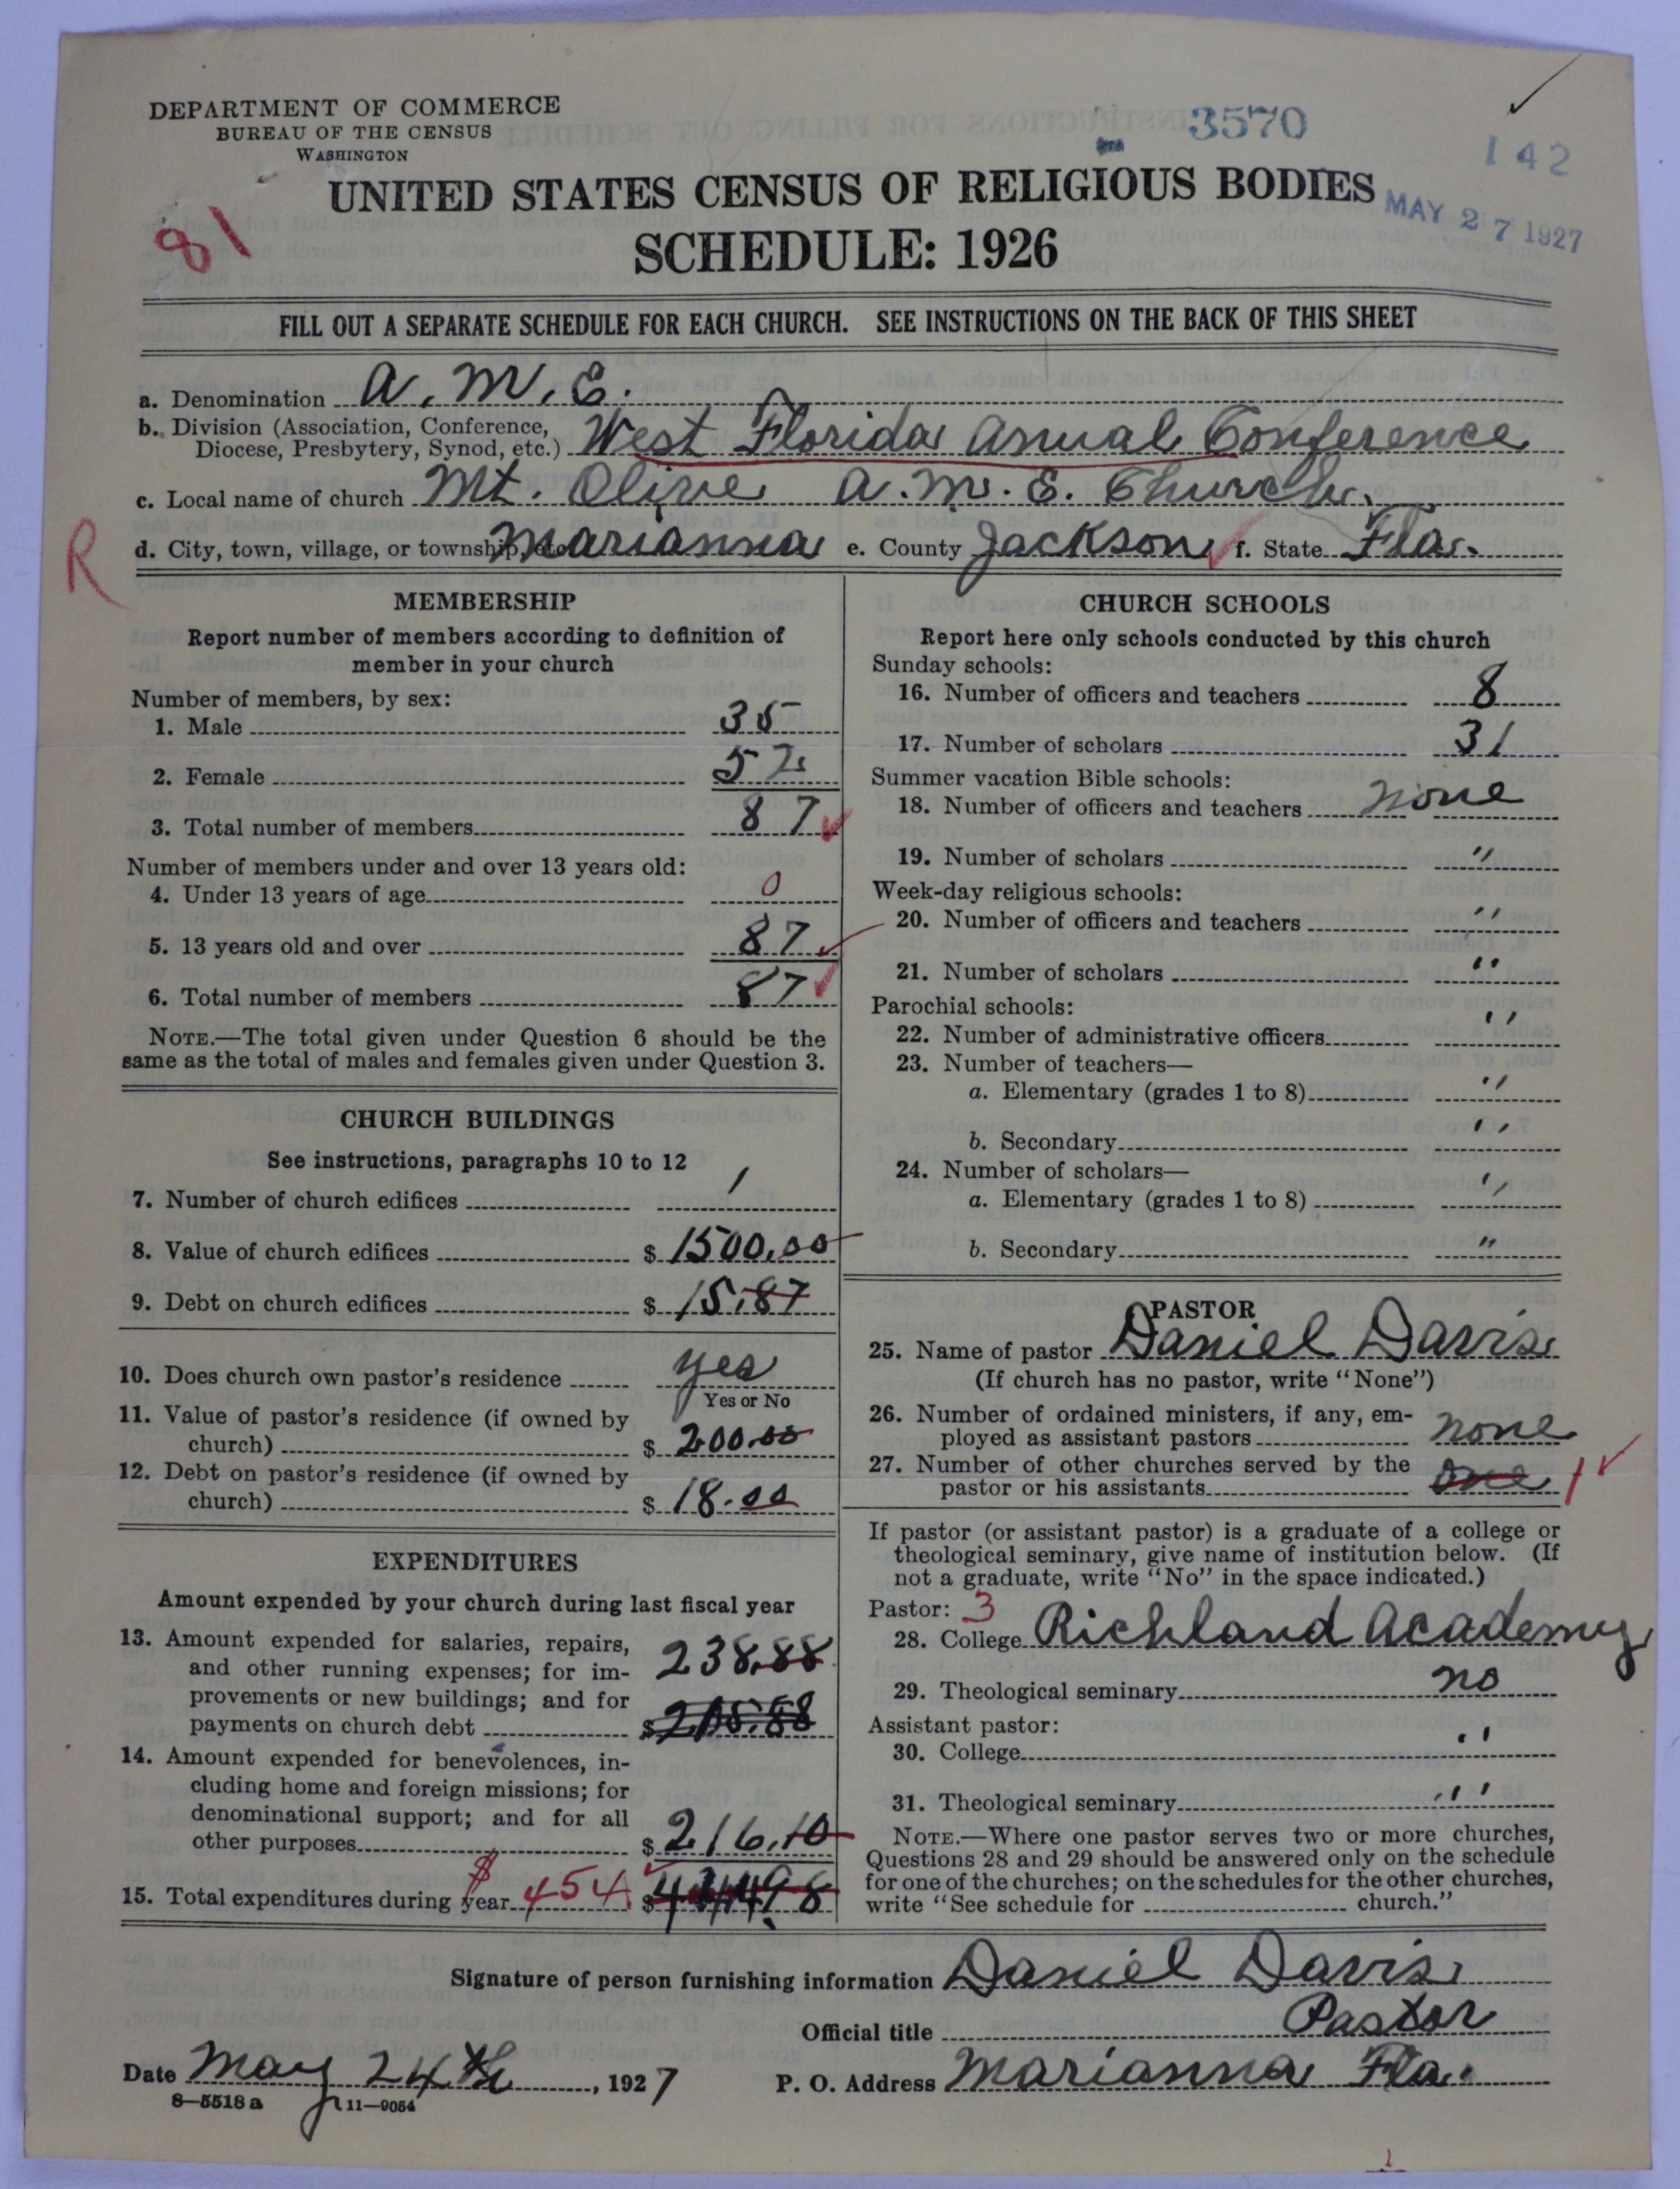 DEPARTMENT OF COMMERCE
BUREAU OF THE CENSUS
WASHINGTON
3570
142
UNITED STATES CENSUS OF RELIGIOUS BODIES
MAY 27 1927
81
SCHEDULE: 1926
FILL OUT A SEPARATE SCHEDULE FOR EACH CHURCH. SEE INSTRUCTIONS ON THE BACK OF THIS SHEET
a. Denomination A. M. E.
b. Division (Association, Conference,
Diocese, Presbytery, Synod, etc.) West Florida Anual Conference
c. Local name of church Mt. Olive A. M. E. Church.
R
d. City, town, village, or township, etc. Marianna e. County Jackson f. State Fla.
MEMBERSHIP
Report number of members according to definition of
member in your church
Number of members, by sex:
1. Male 35
2. Female 52
3. Total number of members 87
Number of members under and over 13 years old:
4. Under 13 years of age 0
5. 13 years old and over 87
6. Total number of members 87
NOTE.—The total given under Question 6 should be the
same as the total of males and females given under Question 3.
CHURCH BUILDINGS
See instructions, paragraphs 10 to 12
7. Number of church edifices 1
8. Value of church edifices $ 1500.00
9. Debt on church edifices $ 15.87
10. Does church own pastor's residence yes
Yes or No
11. Value of pastor's residence (if owned by
church) $ 200.00
12. Debt on pastor's residence (if owned by
church) $ 18.00
EXPENDITURES
Amount expended by your church during last fiscal year
13. Amount expended for salaries, repairs,
and other running expenses; for im-
provements or new buildings; and for
payments on church debt $
238.88
14. Amount expended for benevolences, in-
cluding home and foreign missions; for
denominational support; and for all
other purposes $ 216.10
15. Total expenditures during year $ 454 $
CHURCH SCHOOLS
Report here only schools conducted by this church
Sunday schools:
16. Number of officers and teachers 8
17. Number of scholars 31
Summer vacation Bible schools:
18. Number of officers and teachers none
19. Number of scholars "
Week-day religious schools:
20. Number of officers and teachers "
21. Number of scholars "
Parochial schools:
22. Number of administrative officers "
23. Number of teachers—
a. Elementary (grades 1 to 8) "
b. Secondary "
24. Number of scholars—
a. Elementary (grades 1 to 8) "
b. Secondary "
PASTOR
25. Name of pastor Daniel Davis
(If church has no pastor, write "None")
26. Number of ordained ministers, if any, em-
ployed as assistant pastors none
27. Number of other churches served by the
pastor or his assistants one 1
If pastor (or assistant pastor) is a graduate of a college or
theological seminary, give name of institution below. (If
not a graduate, write "No" in the space indicated.)
Pastor: 3
28. College Richland Academy
29. Theological seminary no
Assistant pastor:
30. College "
31. Theological seminary "
NOTE.—Where one pastor serves two or more churches,
Questions 28 and 29 should be answered only on the schedule
for one of the churches; on the schedules for the other churches,
write "See schedule for church."
Signature of person furnishing information Daniel Davis
Official title Pastor
Date May 24th, 1927 P. O. Address Marianna Fla.
8—5518a 11—9054
1